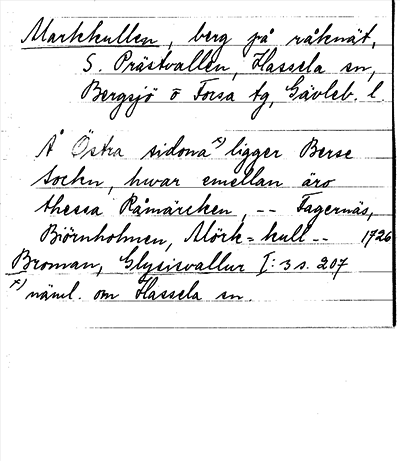 Markkullen, berg på råknät,
S. Prästvallen, Hassela sn,
Bergsjö o Forsa tg, Gävleb. l.
Å Östra sidona x) ligger Berse
sockn, hwar emellan äro
thessa Råmärcken, -- Fagernäs,
Biörnholmen, Mörk=kull -- 1726
Broman, Glysisvallur I:3 s. 207
x) näml. om Hassela sn.